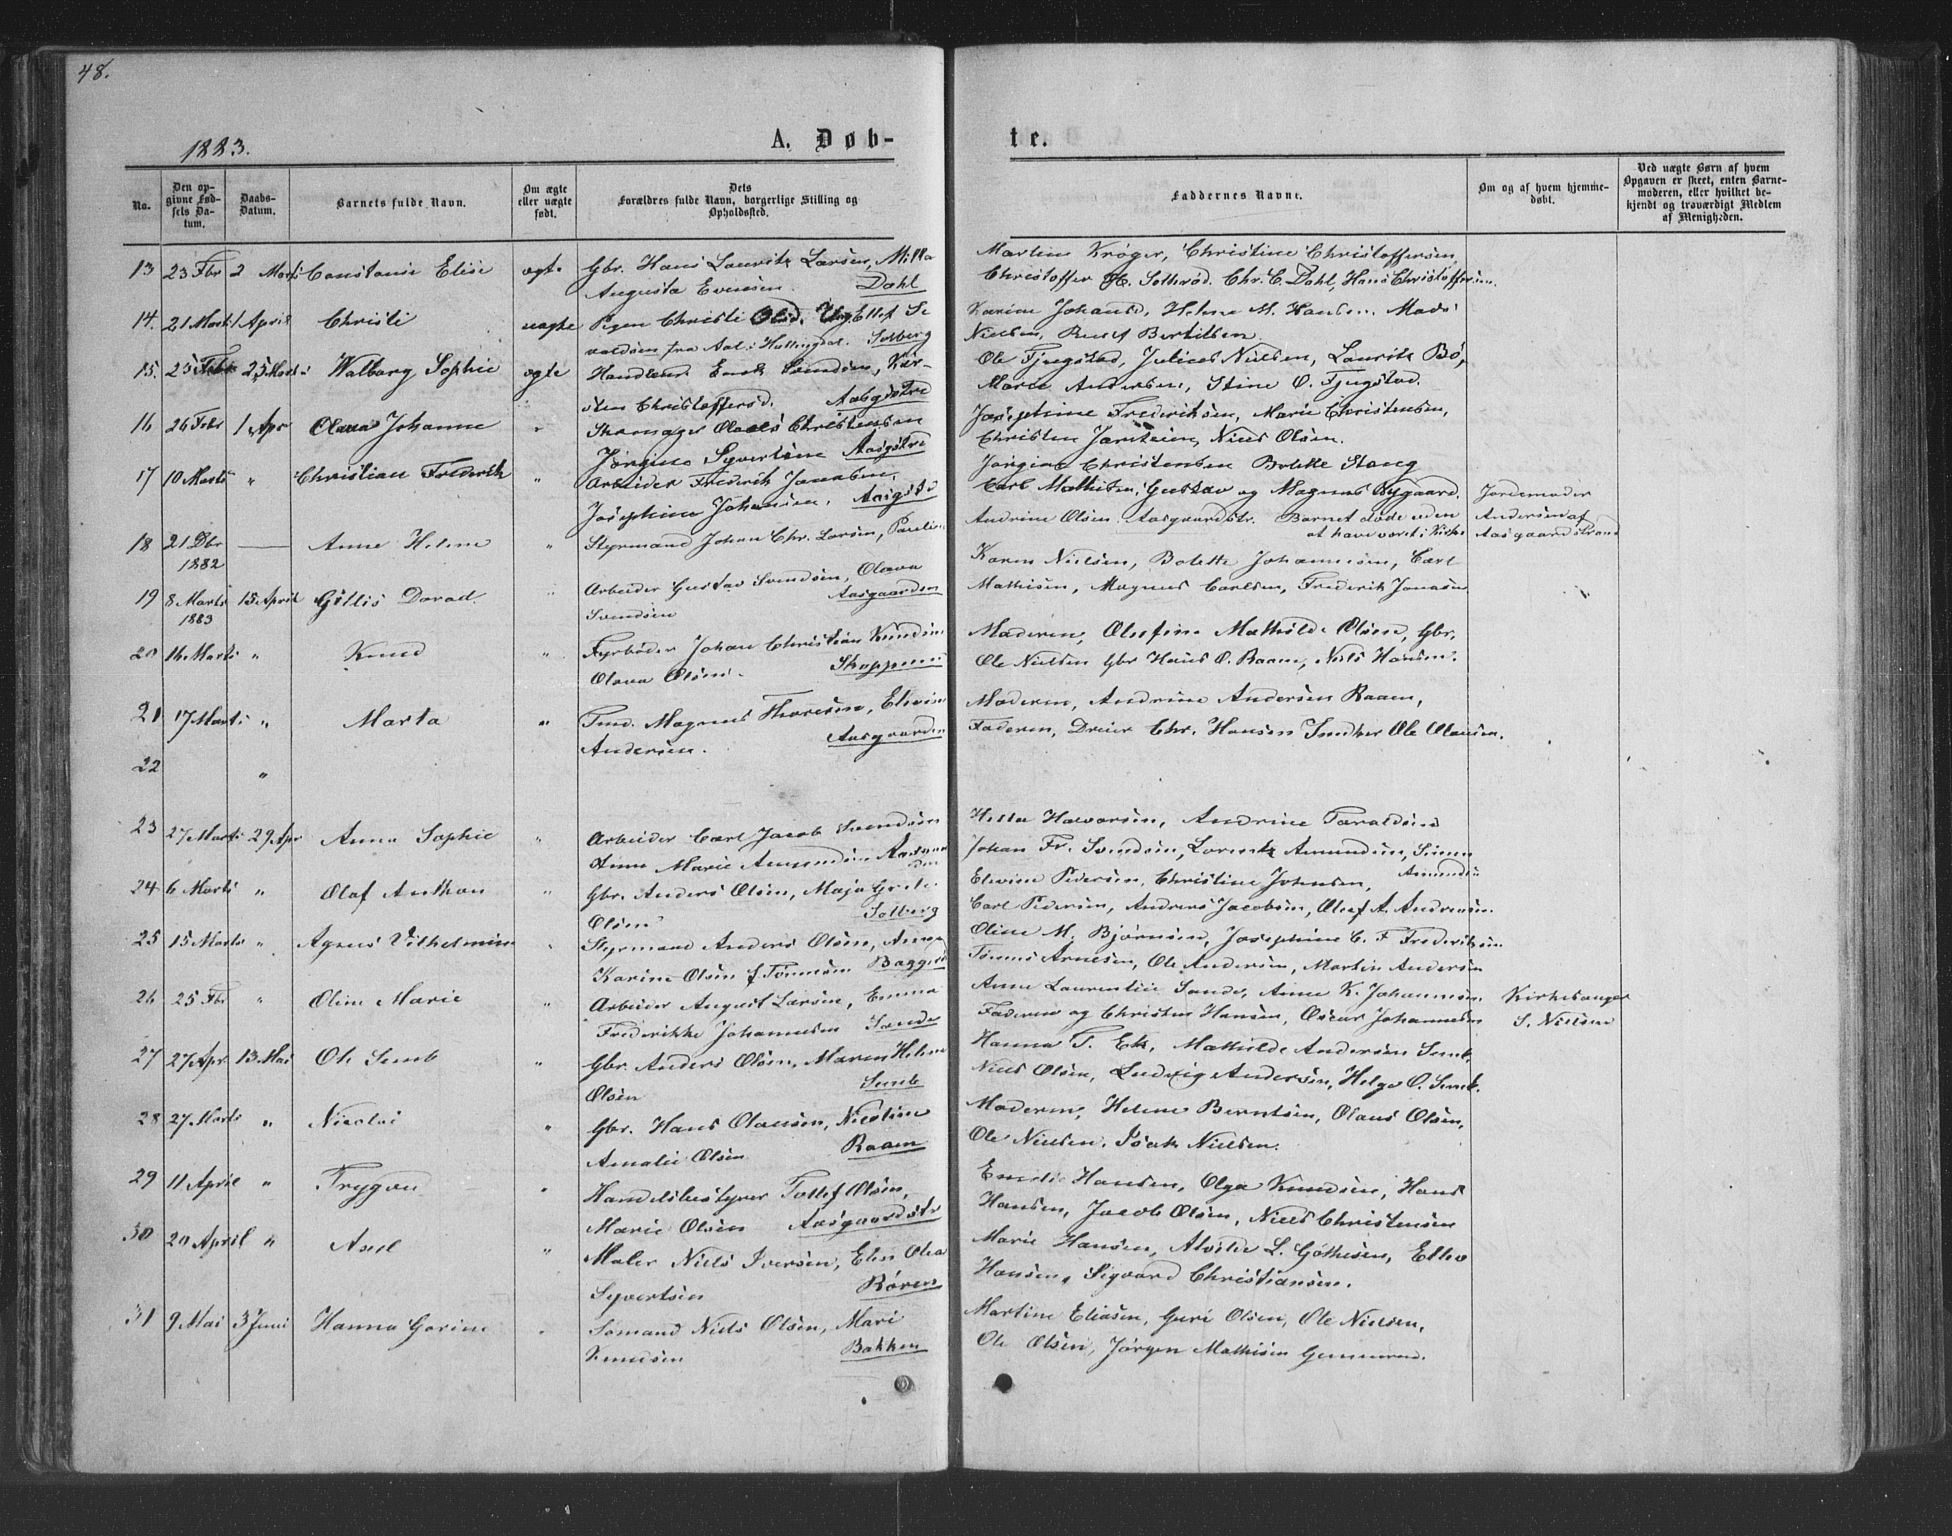 48.
1883.
A. Døb-
te.
No.
Den opgivne Fødsels Datum.
Daabs-Datum.
Barnets fulde Navn.
Om ægte eller uægte født.
Dets Forældres fulde Navn, borgerlige Stilling og Opholdssted.
Faddernes Navne.
Om og af hvem hjemmedøbt.
Ved uægte Børn af hvem Opgaven er skeet, enten Barnemoderen, eller hvilket bekjendt og troværdigt Medlem af Menigheden.
13 23 Fbr 2 Marts Constance Elise ægte Gbr. Hans Lauritz Larsen, Milla
Augusta Evensen. Dahl
Martin Krøger, Christine Christoffersen,
Christoffer H. Solhrød. Chr. C. Dahl, Hans Christoffersen.
14. 21 Marts 1 April Christi uægte Pigen Christi Olsd. Ung. Ellef
fra Aal i Hallingdal. Solberg
Karine Johansd, Helene M. Hansen. Mads
Nielsen, Bertilsen.
15. 25 Febr 25 Marts Walborg Sophie ægte Handlende Svendsen, Kir-
sten Christoffersd. Aasgdstrd
Ole Fjugstad, Julius Nielsen, Lauritz Bø,
Marie Andersen, Stine O. Fjugstad.
16 26 Febr 1 Apr Johanne " Skomager Olaus Christensen
Jørgine Syvertsen Aasgstrd
Josephine Frederiksen, Marie Christensen,
Christen Jansen, Niels Olsen.
17 10 Marts " Christian Frederik " Arbeider Frederik Jonassen,
Josephine Johansen. Aasgstrd
Jørgine Christensen Bolette Stang
Carl Mathisen, Gustav og Magnus Bygaard.
18 21 Dbr 1882 — Anne Helene " Styrmand Johan Chr. Larsen,
Andrine Olsen. Aasgaardstr. Barnet døde uden
at have været i Kirke
Jordemoder
Andersen af
Aasgaardstrand
19 8 Marts 1883 15 April Dorad " Arbeider Gustav Svendsen, Olava
Svendsen Aasgaarden
Karen Nielsen, Bolette Johannesen, Carl
Mathisen, Magnus Carlsen, Frederik Jonasen
20 16 Marts " Knud " Fyrbøder Johan Christian Knudsen
Olava Olsen. Skoppum
Moderen, Olufine Mathilde Olsen, Gbr.
Ole Nielsen Gbr Hans O. Raam, Niels Hansen.
21 17 Marts " Marta " Magnus Thoresen,
Andersen. Aasgaarden
Moderen, Andrine Andersen Raam,
Faderen, Dreier Chr. Hansen Snedker Ole Olausen.
22 "
23 27 Marts 29 Apr Anna Sophie " Arbeider Carl Jacob Svendsen
Anne Marie Amundsen
Halvorsen, Andrine Taraldsen
Johan Fr. Svendsen, Lorentz Amundsen,
Amundsen
24 6 Marts " Olaf Anthon " Gbr. Anders Olsen, Maja Grete
Olsen Solberg
Elevine Pedersen, Christine Johnsen,
Carl Pedersen, Anders Jacobsen, Oluf A. Andersen.
25 15 Marts " Agnes Vilhelmine " Styrmand Anders Olsen, Anna
Karine Olsen f. Tønnesen
Oline M. Bjørnsen, Josephine C. F. Frederiksen
Tønnes Arnesen, Ole Andersen, Martin Andersen
26 25 Fbr " Oline Marie " Arbeider August Larsen, Emma
Frederikke Johannesen Sande
Anne Laurentze Sande, Anne K. Johannesen.
Faderen og Christen Hansen, Oscar Johannesen
Kirkesanger
S. Nielsen
27 27 Apr 13 Mai Ole Semb " Gbr. Anders Olsen, Maren Helene
Olsen Semb
Hanna T. Ek, Mathilde Andersen Semb,
Niels Olsen, Ludvig Andersen, Helge O. Semb.
28 27 Marts " Nicolai " Gbr. Hans Olausen, Nicoline
Amalie Olsen Raam
Moderen, Helene Berntsen, Olaus Olsen,
Ole Nielsen, Isak Nielsen.
29 11 April " Trygve " Handelsbestyrer Tollef Olsen,
Marie Olsen Aasgaardstr
Emilie Hansen, Olga Knudsen, Hans
Hansen, Jacob Olsen, Niels Christensen
30 20 April " Axel " Maler Niels Iversen, Elen Olea
Syvertsen Røren
Marie Hansen, Alvilde L. Gøthesen, Ellev
Hansen, Sigvard Christiansen.
31 9 Mai 3 Juni Hanna Gorine " Sømand Niels Olsen, Mari
Knudsen Bakken
Martine Eliasen, Guri Olsen, Ole Nielsen,
Ole Olsen, Jørgen Mathisen